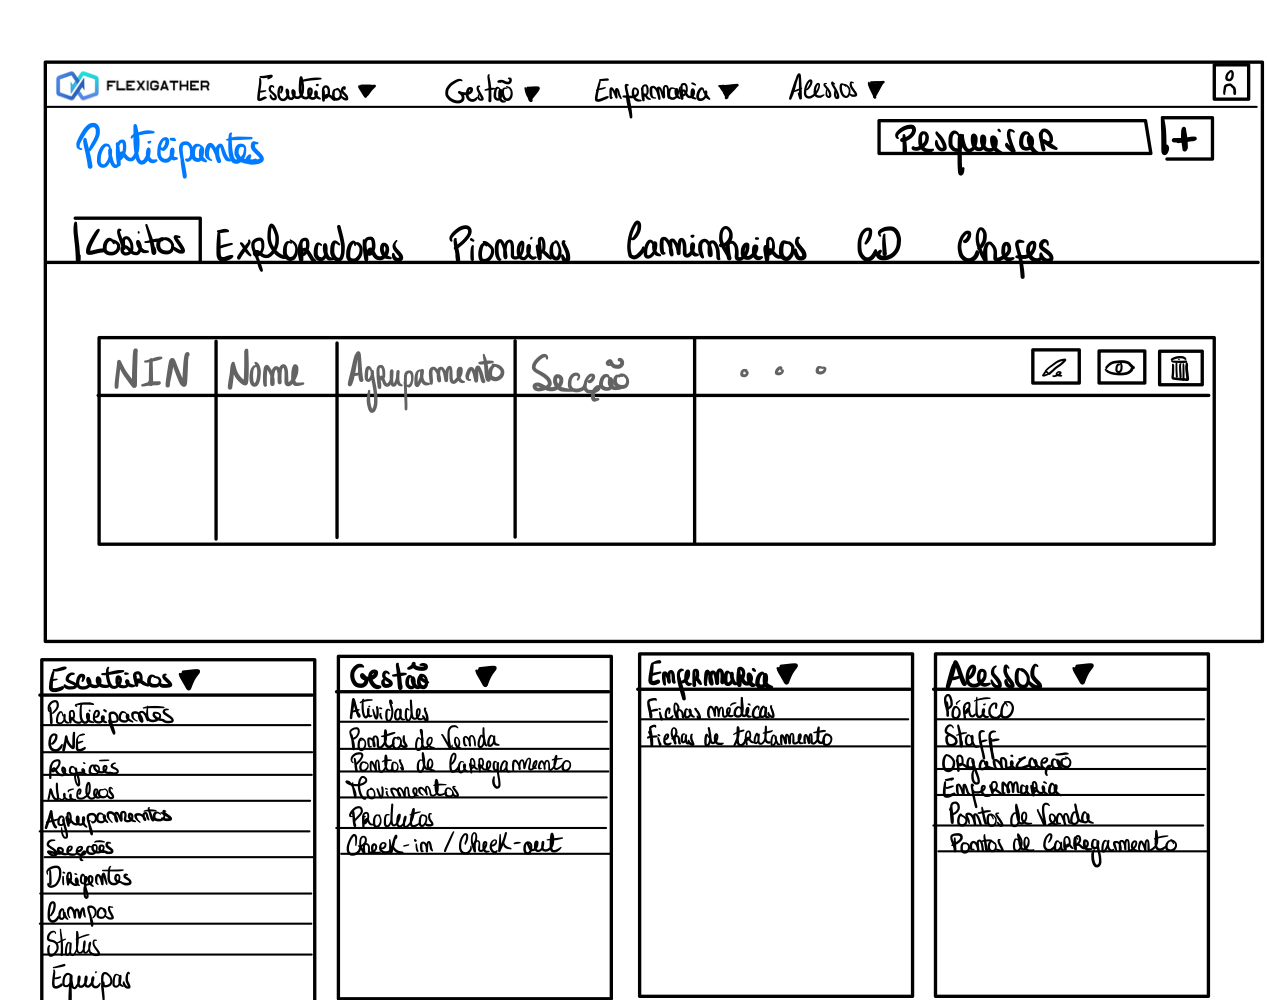 FLEXIGATHER Escuteiros Gestão Enfermaria Acessos
Participantes
Pesquisar +
Lobitos Exploradores Pioneiros Caminheiros CD Chefes
NIN Nome Agrupamento Secção
Escuteiros
Participantes
CNE
Regiões
Núcleos
Agrupamentos
Secções
Dirigentes
Campos
Status
Equipas
Gestão
Atividades
Pontos de Venda
Pontos de Carregamento
Movimentos
Produtos
Check-in / Check-out
Enfermaria
Fichas médicas
Fichas de tratamento
Acessos
Pórtico
Staff
Organização
Enfermaria
Pontos de Venda
Pontos de Carregamento